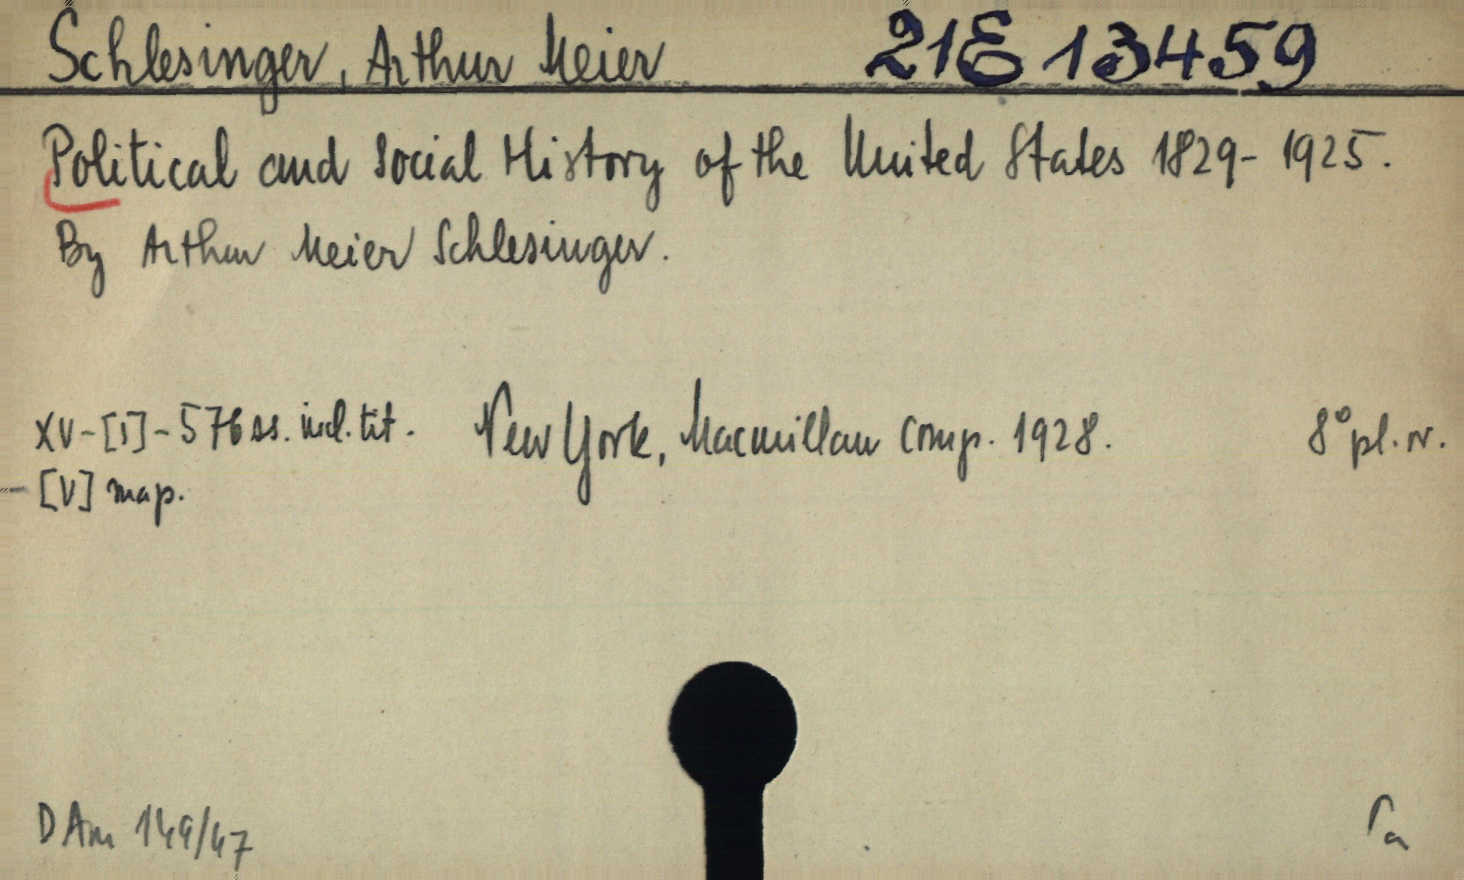 Schlesinger, Arthur Meier 21E13459
Political and Social History of the United States 1829-1925.
By Arthur Meier Schlesinger.
XV-[1]-576 ss. incl. tit. New York, Macmillan Comp. 1928. 8° pl. v.
- [V] map.
D Am 149/47